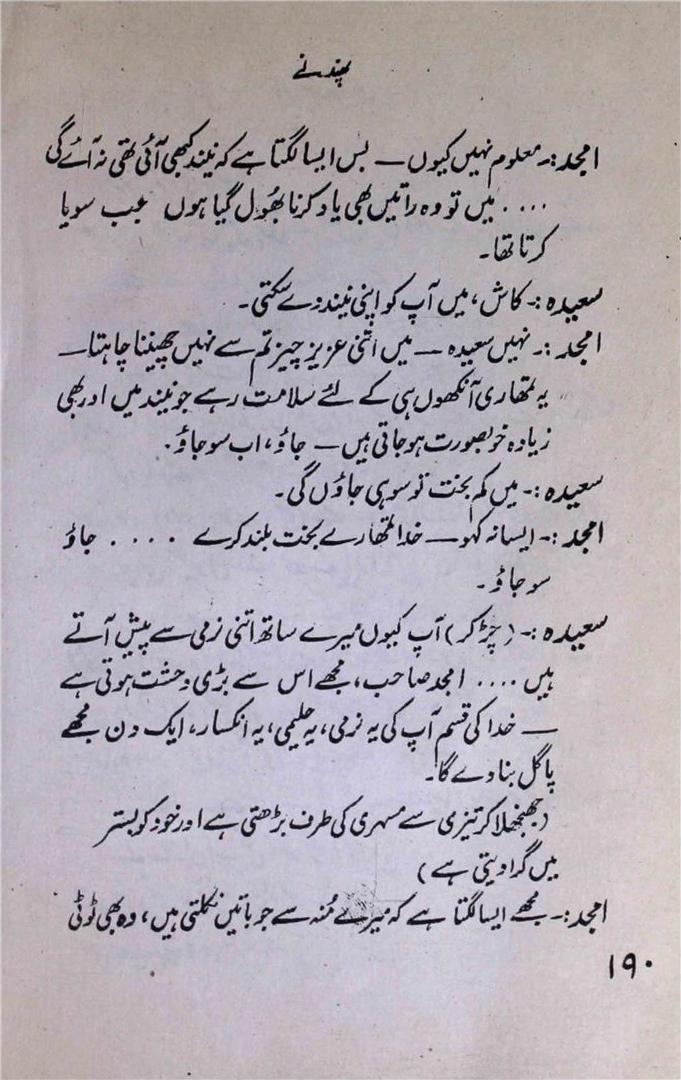 پھندنے
امجد :۔ معلوم نہیں کیوں — بس ایسا لگتا ہے کہ نیند کبھی آئی تھی نہ آئے گی
.... میں تو وہ راتیں بھی یاد کرنا بھول گیا ہوں جب سویا
کرتا تھا۔
سعیدہ :۔ کاش، میں آپ کو اپنی نیند دے سکتی۔
امجد :۔ نہیں سعیدہ — میں اتنی عزیز چیز تم سے نہیں چھیننا چاہتا —
یہ تمھاری آنکھوں ہی کے لئے سلامت رہے جو نیند میں اور بھی
زیادہ خوبصورت ہو جاتی ہیں — جاؤ، اب سو جاؤ۔
سعیدہ :۔ میں کم بخت تو سو ہی جاؤں گی۔
امجد :۔ ایسا نہ کہو — خدا تمھارے بخت بلند کرے .... جاؤ
سو جاؤ۔
سعیدہ :۔ (چڑ کر) آپ کیوں میرے ساتھ اتنی نرمی سے پیش آتے
ہیں .... امجد صاحب، مجھے اس سے بڑی وحشت ہوتی ہے
— خدا کی قسم آپ کی یہ نرمی، یہ حلیمی، یہ انکسار، ایک دن مجھے
پاگل بنا دے گا۔
(جھنجھلا کر تیزی سے مسہری کی طرف بڑھتی ہے اور خود کو بستر
میں گرا دیتی ہے)
امجد :۔ مجھے ایسا لگتا ہے کہ میرے مُنہ سے جو باتیں نکلتی ہیں، وہ بھی ٹوٹی
۱۹۰